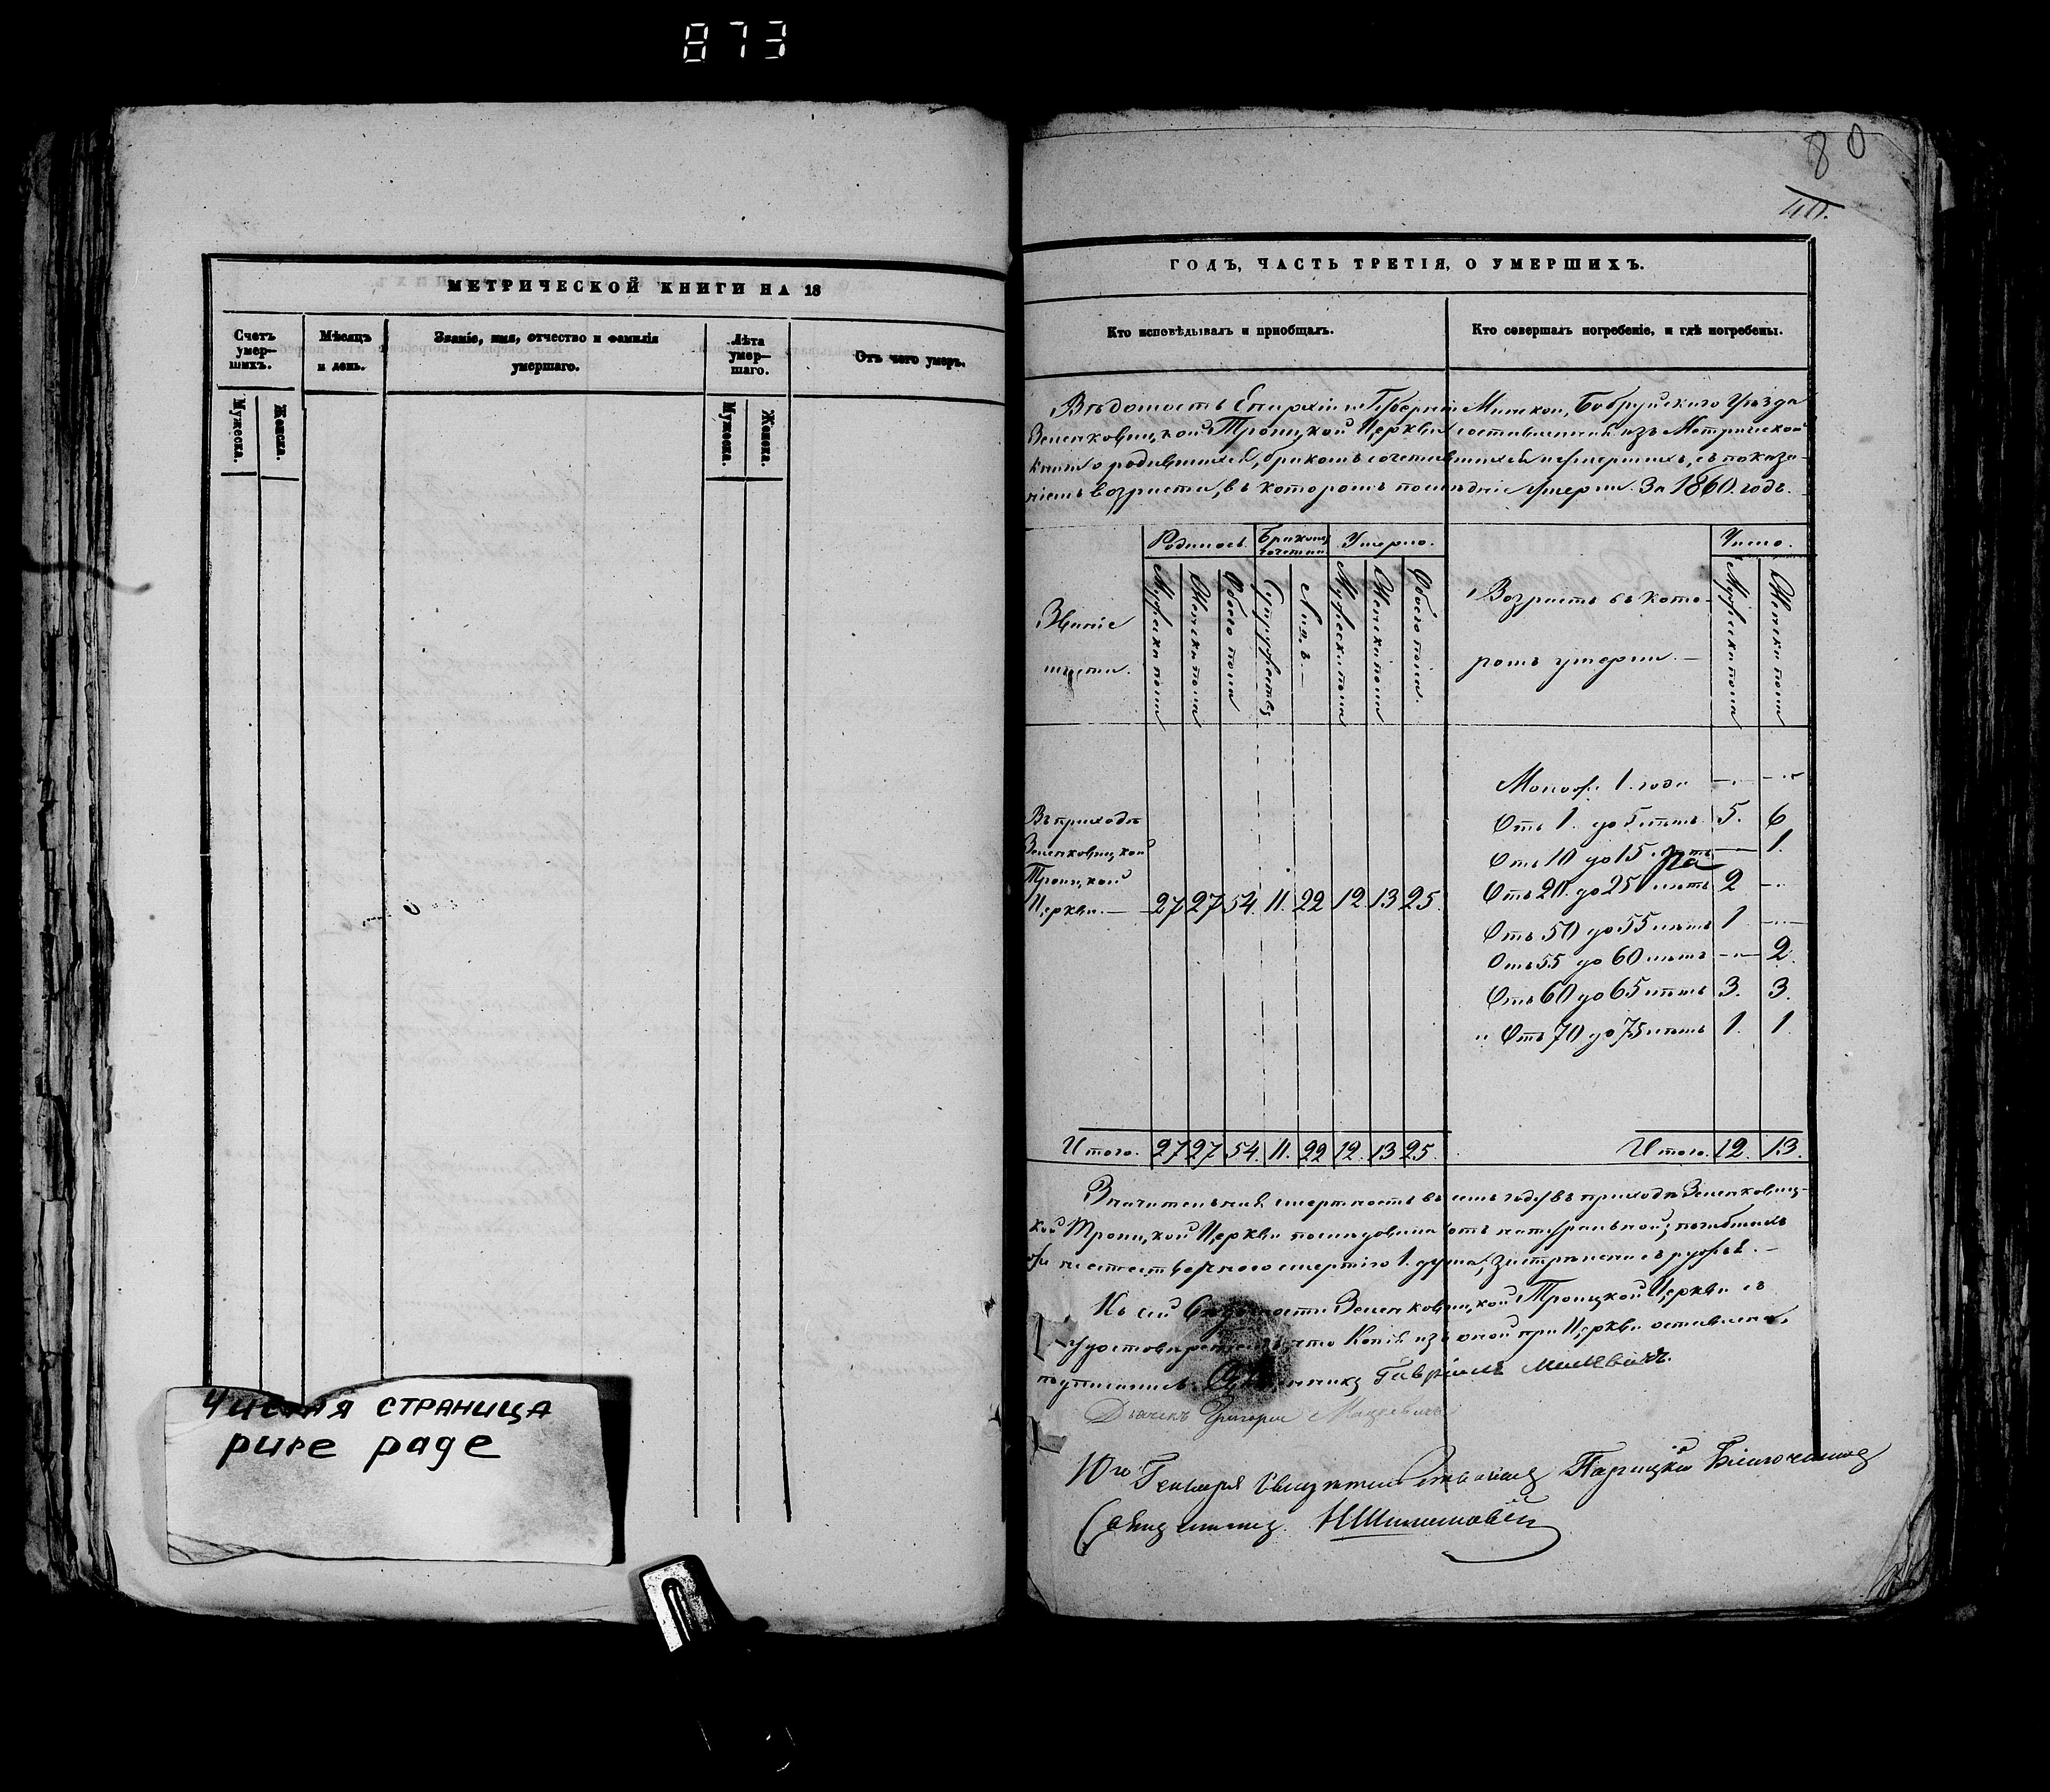 873
80
40.
МЕТРИЧЕСКОЙ КНИГИ НА 18
Счетъ умер-шихъ.
Мѣсяцъ и день.
Званіе, имя, отчество и фамилія умершаго.
Лѣта умер-шаго.
Отъ чего умеръ.
Мужеска.
Женска.
Мужеска.
Женска.
Чистая страница
pure page
ГОДЪ, ЧАСТЬ ТРЕТІЯ, О УМЕРШИХЪ.
Кто исповѣдывалъ и пріобщалъ.
Кто совершалъ погребеніе, и гдѣ погребены.
Вѣдомость Епархіи и Губерніи Минской, Бобруйскаго Уѣзда
Троицкой Церкви составленная изъ Метрической
книги о родившихся, бракомъ сочетавшихся и умершихъ, съ показа-
ніемъ возраста, въ которомъ послѣдніе умерли. За 1860. годъ.
Званіе мѣста.
Родилось.
Бракомъ сочетано
Умерло.
Мужеска пола
Женска пола
Обоего пола
Супружествъ
Лицъ.
Мужеска пола
Женска пола
Обоего пола.
Возрастъ въ кото-
ромъ умерли. —
Число.
Мужеска пола
Женска пола
Въ приходѣ
Троицкой
Церкви. — 27 27 54. 11. 22 12. 13 25.
Итого. 27 27 54. 11. 22 12. 13 25.
Отъ 1. до 5 лѣтъ 5. 6
Отъ 10 до 15. лѣтъ — 1.
Отъ 20. до 25 лѣтъ 2 —
Отъ 50 до 55 лѣтъ 1 —
Отъ 55 до 60 лѣтъ — 2.
Отъ 60 до 65 лѣтъ 3. 3.
Отъ 70 до 75 лѣтъ 1. 1.
Итого. 12. 13.
Значительная смертность въ семъ году въ приходѣ
Троицкой Церкви послѣдовала отъ натуральной; погибшихъ
смертію 1. душа,
Къ сей Вѣдомости Троицкой Церкви съ
что Копія изъ оной при Церкви оставлена,
подписались. Священникъ Гавріилъ
Дьячекъ Григорій Мацкевичъ
10го Генваря Благочинный
Священникъ